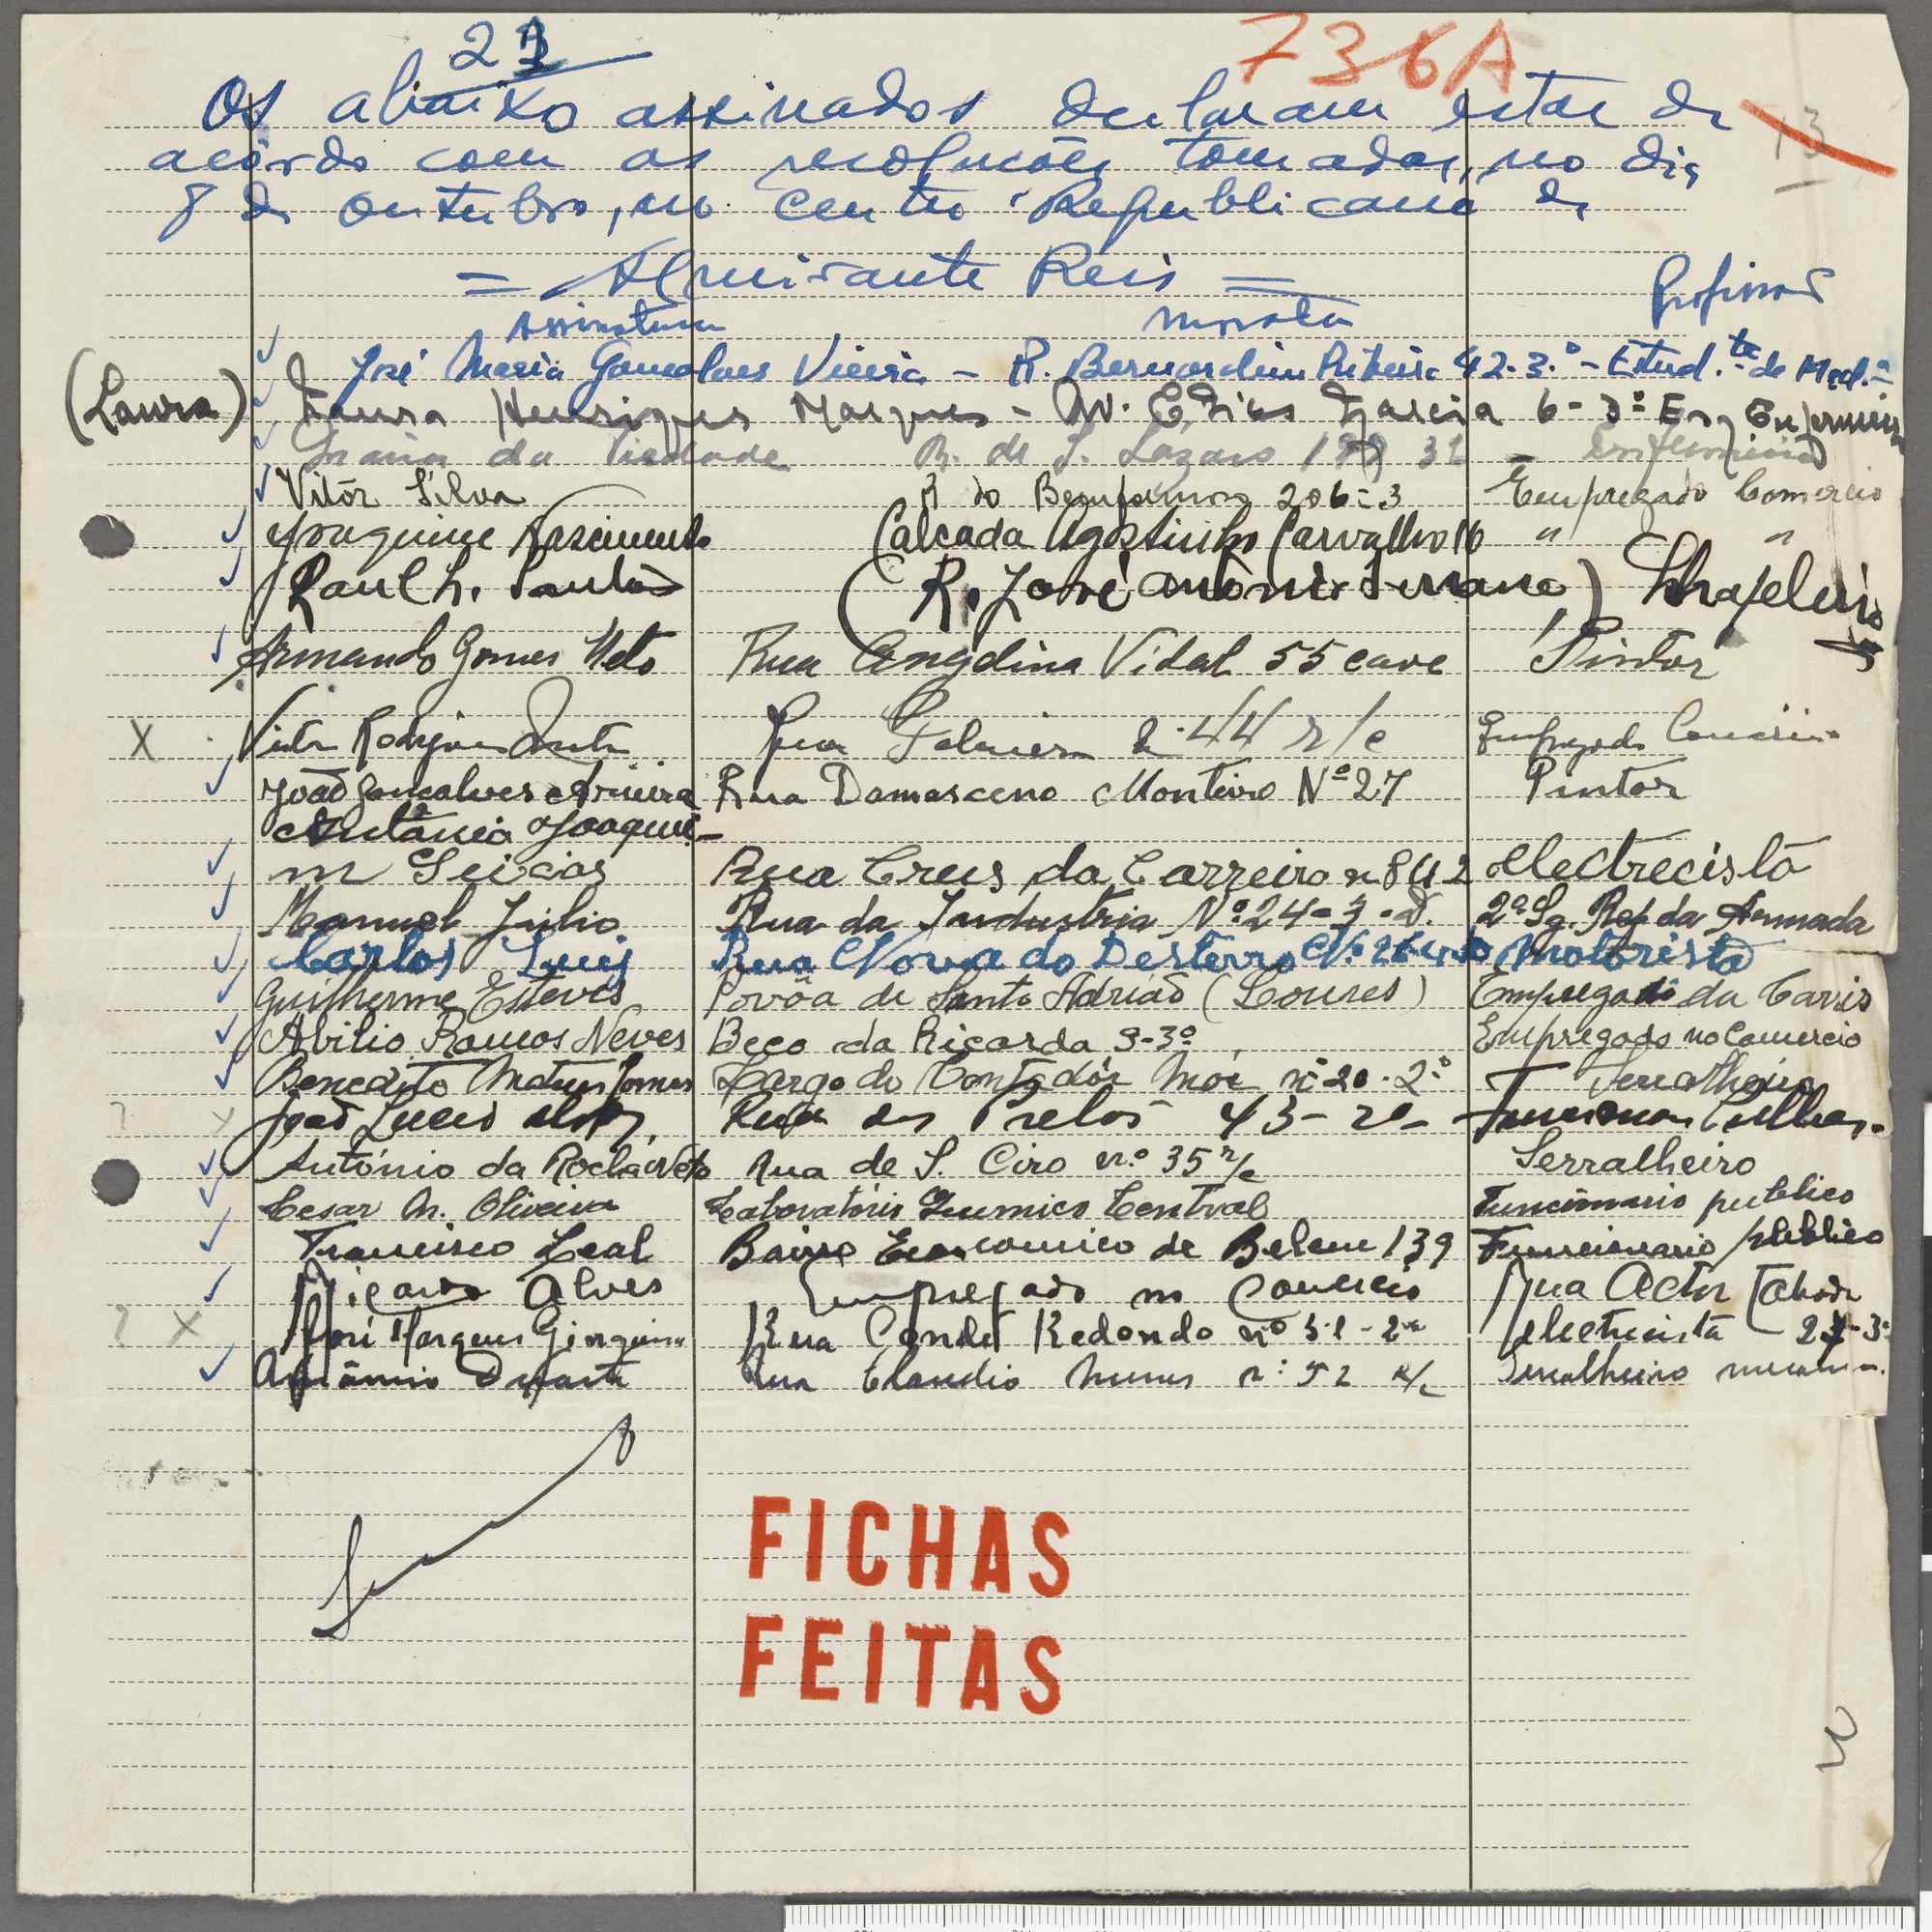 23
736A
13
Os abaixo assinados declaram estar de
acôrdo com as resoluções tomadas, no dia
8 de outubro, no Centro Republicano de
= Almirante Reis =
Assinatura morada Profissão
José Maria Gonçalves Vieira - R. Bernardim Ribeiro 42-3.º - Estud.te de Med.ª
(Laura) Laura Henriques Marques - Av. Elias Garcia 6-3º Esq Enfermeira
Maria da Piedade R. de S. Lázaro - Enfermeira
Vitôr Silva R do Bemformoso 206-3 Empregado Comercio
Joaquim Nascimento Calcada Agostinho Carvalho 16 " "
Raul h. Santos (R. José António Serrano) Chapeleiro
Armando Gomes Neto Rua Angelina Vidal 55 cave Pintor
X Rua Palmira 44 r/c Empregado Comércio
João Gonçalves Arieira Rua Damasceno Monteiro Nº 27 Pintor
António Joaqui-
m Seixas Rua Crus da Carreira electrecista
Manuel Julio Rua da Industria Nº 24-3-D. 2º Sg. Ref da Armada
Carlos Luis Rua Nova do Desterro Motorista
Guilherme Esteves Povôa de Santo Adrião (Loures) Empregado da Carris
Abilio Ramos Neves Beco da Ricarda 9-3º Empregado no Comercio
Benedito Mateus Gomes Largo do Contadôr Mor nº 20-2º Serralheiro
? X João Lucio Rua dos Prelos 43-
António da Rocha Neto Rua de S. Ciro n.º 35 r/c Serralheiro
Cesar M. Oliveira Laboratório Quimico Central Funcionario publico
Francisco Leal Bairro Economico de Belem 139 Funcionario publico
Ricardo Alves Empregado no Comercio Rua Actor Taborda
? X José Marques Rua Conde Redondo nº electricista 27-3º
Afrânio Duarte Rua Claudio Nunes nº 52 r/c Serralheiro
FICHAS
FEITAS